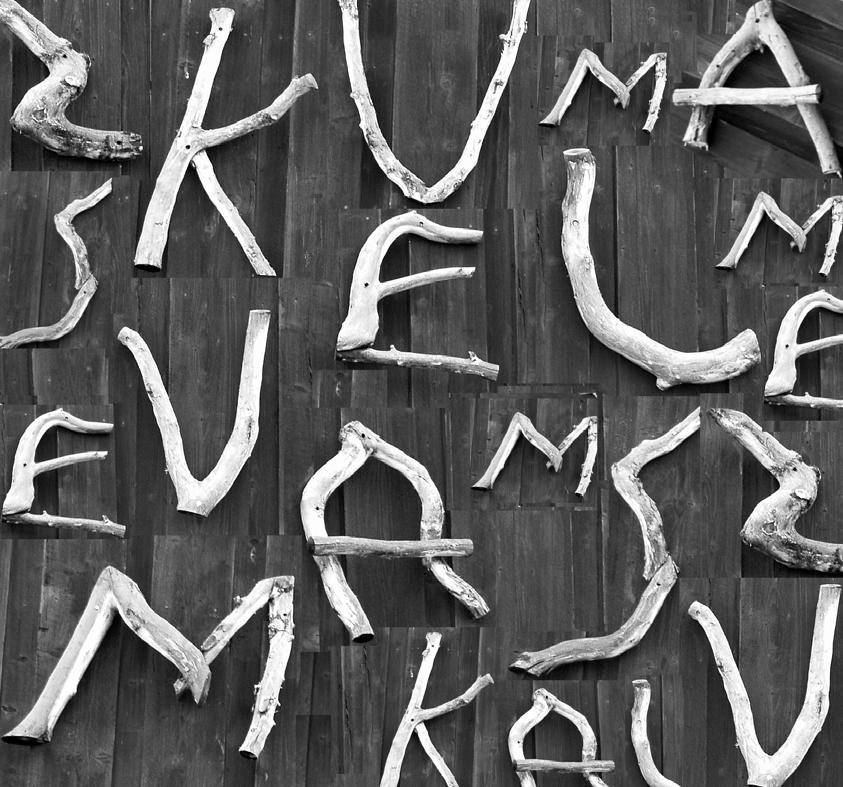 Z K U M A
S E L M E
E V A M S Z
M K A L V